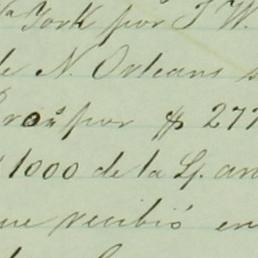 York por J W.
de N. Orleans
por $ 277
1000 de la Sf. an
que recibió en